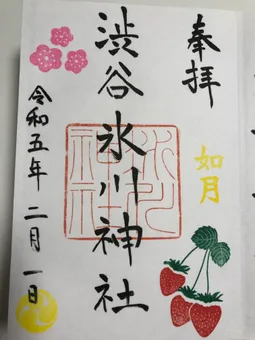 奉拝
如月
渋谷氷川神社
令和五年二月一日